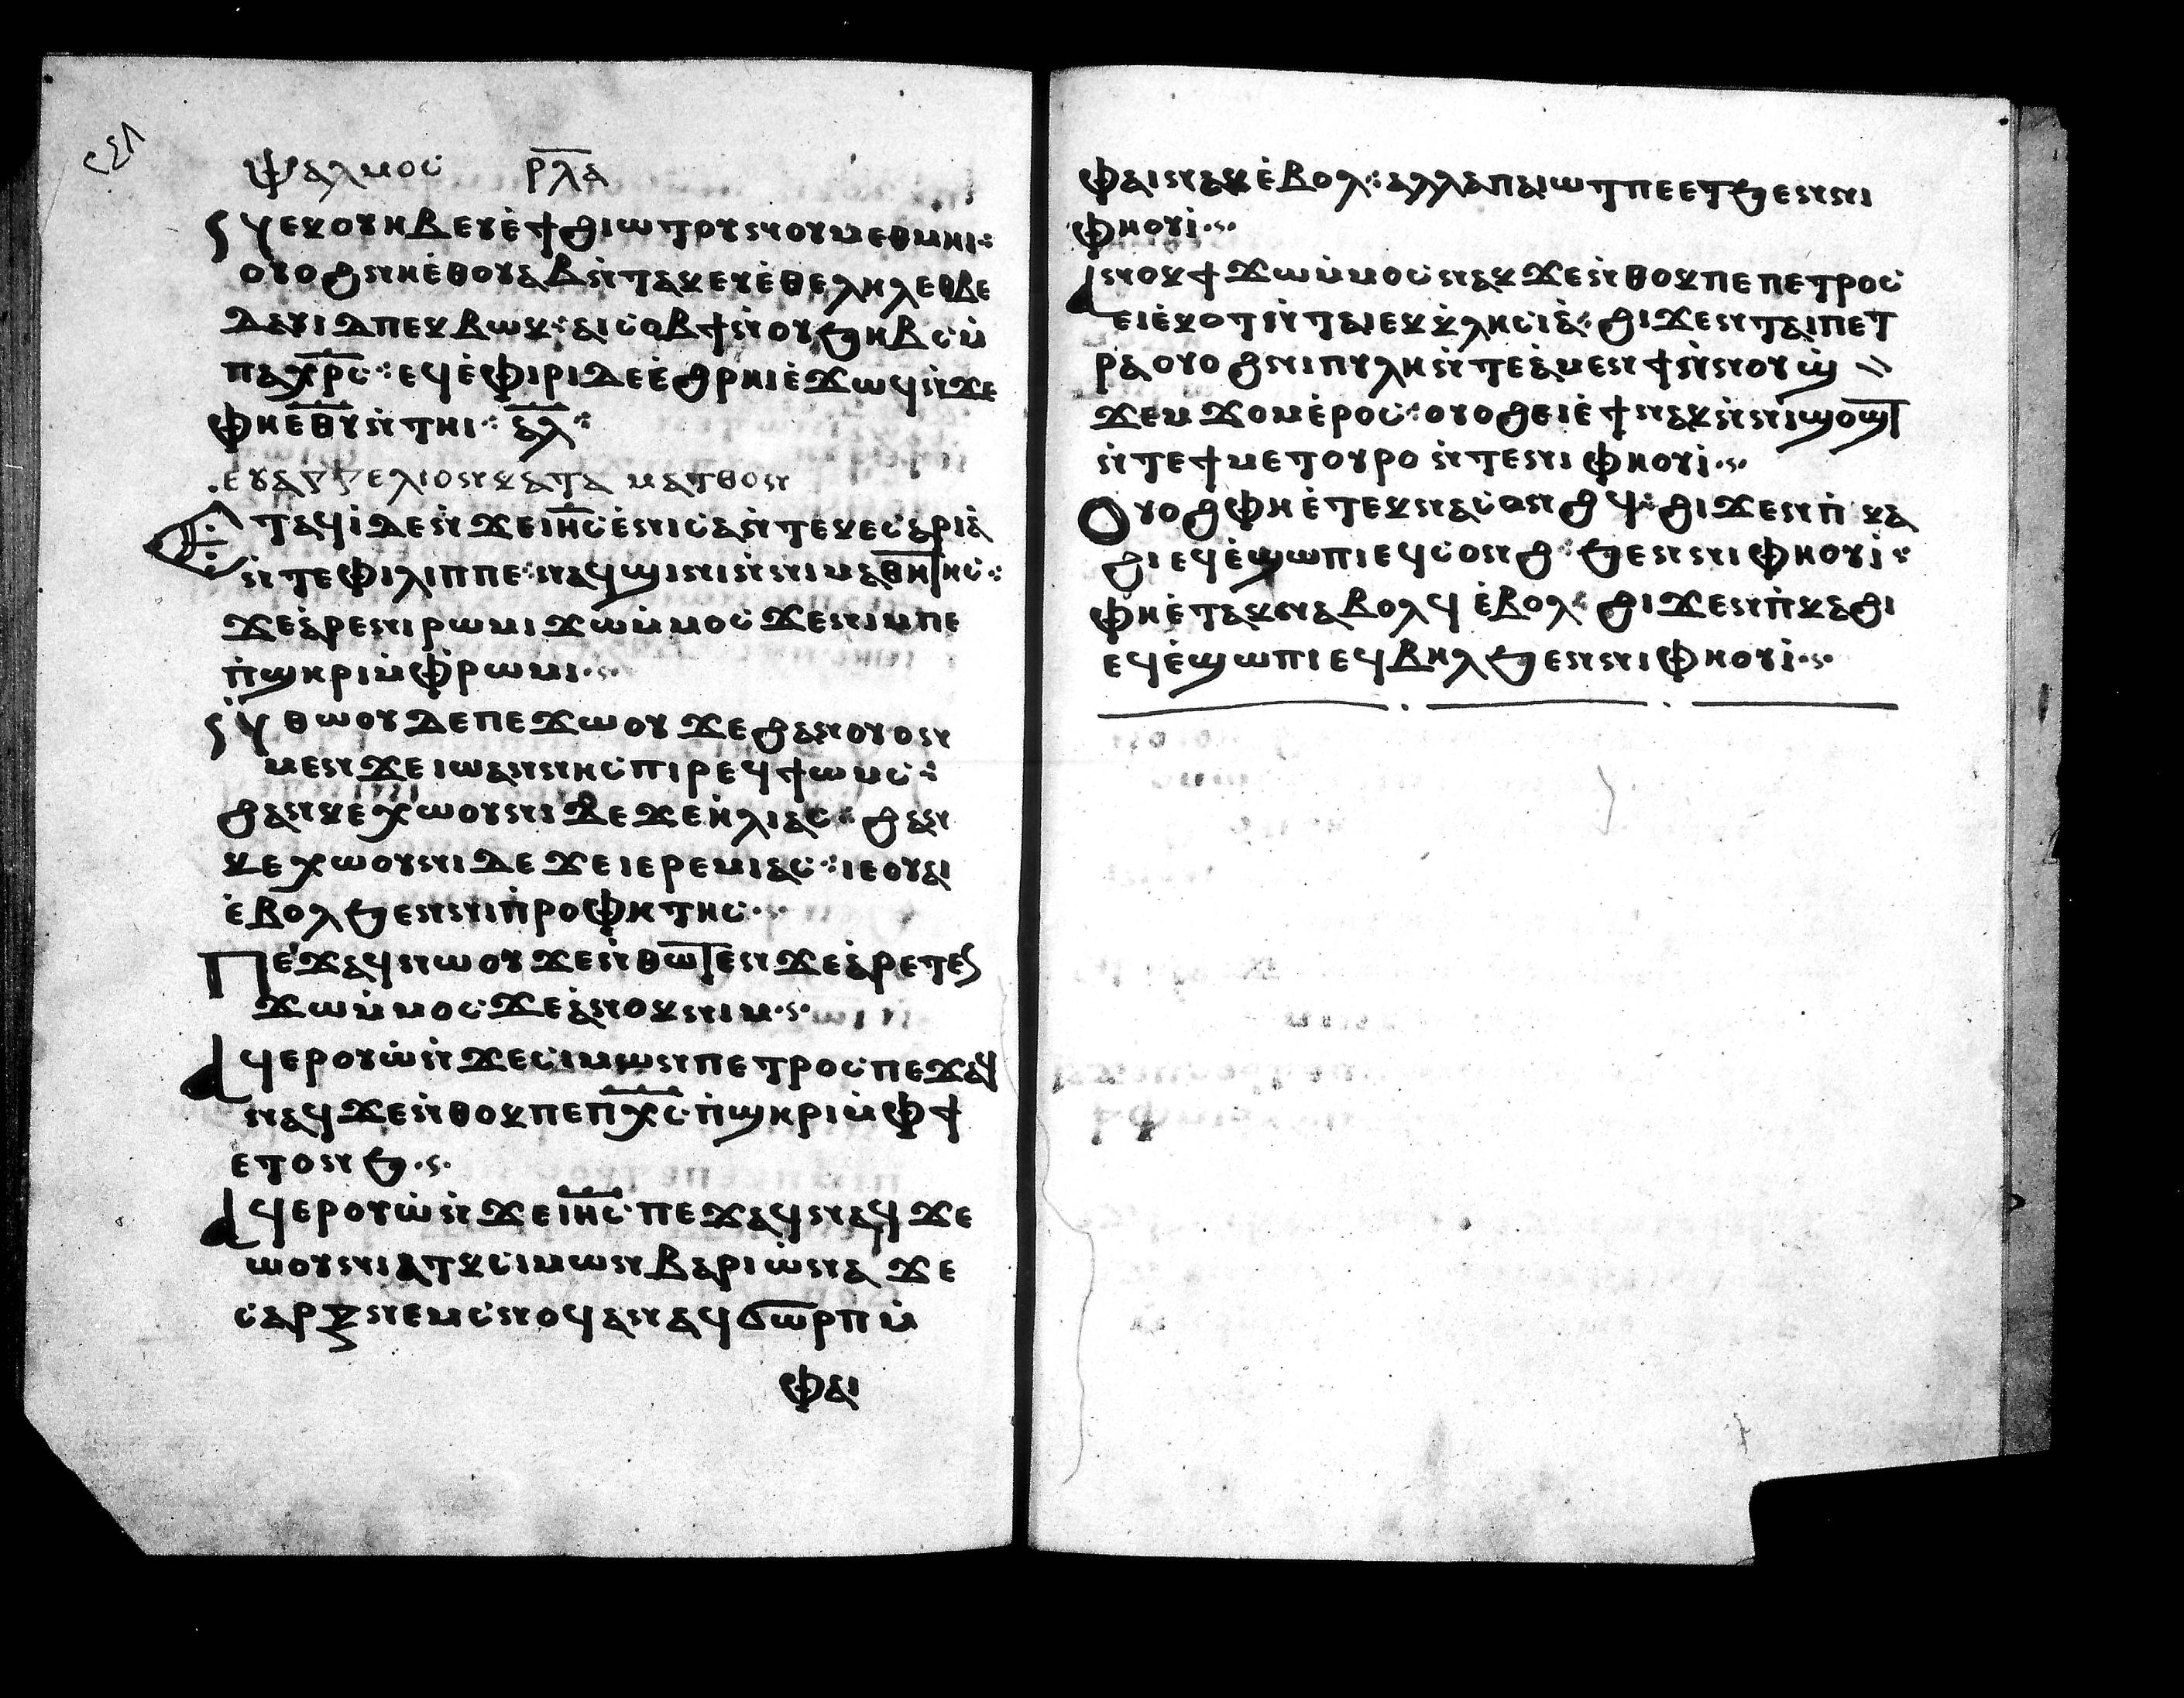 ⲯⲁⲗⲙⲟⲥ ⲣ̅ⲗ̅ⲁ̅
ⲛⲉⲕⲟⲩⲏⲃ ⲉⲩⲉ̀ϯϩⲓⲱⲧⲟⲩ ⲛⲟⲩⲙⲉⲑⲙⲏⲓ⁖
ⲟⲩⲟϩ ⲛⲏⲉ̀ⲑⲟⲩⲁⲃ ⲛ̀ⲧⲁⲕ ⲉⲩⲉ̀ⲑⲉⲗⲏⲗ ⲉⲑⲃⲉ
ⲇⲁⲩⲓⲇ ⲡⲉⲕⲃⲱⲕ⁖ ⲁⲓⲥⲟⲃϯ ⲛ̀ⲟⲩϧⲏⲃⲥ ⲙ̀
ⲡⲁⲭ̅ⲣ̅ⲥ̅⁖ ⲉϥⲉ̀ⲫⲓⲣⲓ ⲇⲉ ⲉ̀ϩⲣⲏⲓ ⲉ̀ϫⲱϥ ⲛ̀ϫⲉ
ⲫⲏⲉ̅ⲑ̅ⲩ̅ ⲛ̀ⲧⲏⲓ⁖ ⲁ̅ⲗ̅⁖
ⲉⲩⲁⲅⲅⲉⲗⲓⲟⲛ ⲕⲁⲧⲁ ⲙⲁⲧⲑⲟⲛ
Ⲉⲧⲁϥⲓ̀ ⲇⲉ ⲛ̀ϫⲉ ⲓⲏ̅ⲥ̅ ⲉ̀ⲛⲓⲥⲁ ⲛ̀ⲧⲉ ⲕⲉⲥⲁⲣⲓⲁ̀
ⲛ̀ⲧⲉ ⲫⲓⲗⲓⲡⲡⲉ⁖ ⲛⲁϥϣⲓⲛⲓ ⲛ̀ⲛⲓⲙⲁⲑⲏⲧⲏⲥ⁖
ϫⲉ ⲁ̀ⲣⲉ ⲛⲓⲣⲱⲙⲓ ϫⲱ ⲙ̀ⲙⲟⲥ ϫⲉ ⲛⲓⲙ ⲡⲉ
ⲡ̀ϣⲏⲣⲓ ⲙ̀ⲫ̀ⲣⲱⲙⲓ·ⲥ·
Ⲛ̀ⲑⲱⲟⲩ ⲇⲉ ⲡⲉϫⲱⲟⲩ ϫⲉ ϩⲁⲛⲟⲩⲟⲛ
ⲙⲉⲛ ϫⲉ ⲓⲱⲁⲛⲛⲏⲥ ⲡⲓⲣⲉϥϯⲱⲙⲥ⁖
ϩⲁⲛⲕⲉⲭⲱⲟⲩⲛⲓ ⲇⲉ ϫⲉ ⲏ̀ⲗⲓⲁⲥ⁖ ϩⲁⲛ
ⲕⲉⲭⲱⲟⲩⲛⲓ ⲇⲉ ϫⲉ ⲓⲉⲣⲉⲙⲓⲁⲥ⁖ ⲓⲉ ⲟⲩⲁⲓ
ⲉ̀ⲃⲟⲗ ϧⲉⲛ ⲛⲓⲡ̀ⲣⲟⲫⲏⲧⲏⲥ·ⲥ·
Ⲡⲉϫⲁϥ ⲛⲱⲟⲩ ϫⲉ ⲛ̀ⲑⲱⲧⲉⲛ ϫⲉ ⲁ̀ⲣⲉⲧⲉⲛ
ϫⲱ ⲙ̀ⲙⲟⲥ ϫⲉ ⲁ̀ⲛⲟⲕ ⲛⲓⲙ·ⲥ·
Ⲁϥⲉⲣⲟⲩⲱ̀ ⲛ̀ϫⲉ ⲥⲓⲙⲱⲛ ⲡⲉⲧⲣⲟⲥ ⲡⲉϫⲁϥ
ⲛⲁϥ ϫⲉ ⲛ̀ⲑⲟⲕ ⲡⲉ ⲡ̅ⲭ̅ⲥ̅ ⲡ̀ϣⲏⲣⲓ ⲙ̀ⲫϯ
ⲉⲧⲟⲛϧ·ⲥ·
Ⲁϥⲉⲣⲟⲩⲱ̀ ⲛ̀ϫⲉ ⲓ̅ⲏ̅ⲥ̅ ⲡⲉϫⲁϥ ⲛⲁϥ ϫⲉ
ⲱⲟⲩⲛⲓⲁⲧⲕ ⲥⲓⲙⲱⲛ ⲃⲁⲣⲓⲱ̀ⲛⲁ ϫⲉ
ⲥⲁⲣⲝ ⲛⲉⲙ ⲥⲛⲟϥ ⲁⲛ ⲁϥϭⲱⲣⲡ ⲙ̀
ⲫⲁⲓ
ⲫⲁⲓ ⲛⲁⲕ ⲉ̀ⲃⲟⲗ⁖ ⲁⲗⲗⲁ ⲡⲁⲓⲱⲧ ⲡⲉ ⲉⲧϧⲉⲛ ⲛⲓ
ⲫⲏⲟⲩⲓ̀·ⲥ·
Ⲁⲛⲟⲕ ϯϫⲱ ⲙ̀ⲙⲟⲥ ⲛⲁⲕ ϫⲉ ⲛ̀ⲑⲟⲕ ⲡⲉ ⲡⲉⲧⲣⲟⲥ
ⲉⲓⲉ̀ⲕⲟⲧ ⲛ̀ⲧⲁⲓⲉⲕⲕⲗⲏⲥⲓⲁ̀⁖ ϩⲓϫⲉⲛ ⲧⲁⲓⲡⲉⲧ
ⲣⲁ ⲟⲩⲟϩ ⲛⲓⲡⲩⲗⲏ ⲛ̀ⲧⲉ ⲁ̀ⲙⲉⲛϯ ⲛ̀ⲛⲟⲩϣ
ϫⲉⲙϫⲟⲙ ⲉ̀ⲣⲟⲥ⁖ ⲟⲩⲟϩ ⲉⲓⲉ̀ϯ ⲛⲁⲕ ⲛ̀ⲛⲓϣⲟϣⲧ
ⲛ̀ⲧⲉ ϯⲙⲉⲧⲟⲩⲣⲟ ⲛ̀ⲧⲉ ⲛⲓⲫⲏⲟⲩⲓ̀·ⲥ·
Ⲟⲩⲟϩ ⲫⲏⲉ̀ⲧⲉⲕⲛⲁⲥⲟⲛϩϥ⁖ ϩⲓϫⲉⲛ ⲡ̀ⲕⲁ
ϩⲓ ⲉϥⲉ̀ϣⲱⲡⲓ ⲉϥⲥⲟⲛϩ⁖ ϧⲉⲛ ⲛⲓⲫⲏⲟⲩⲓ̀⁖
ⲫⲏⲉ̀ⲧⲁⲕⲛⲁⲃⲟⲗϥ ⲉ̀ⲃⲟⲗ⁖ ϩⲓϫⲉⲛ ⲡ̀ⲕⲁϩⲓ
ⲉϥⲉ̀ϣⲱⲡⲓ ⲉϥⲃⲏⲗ ϧⲉⲛ ⲛⲓⲫⲏⲟⲩⲓ̀·ⲥ·